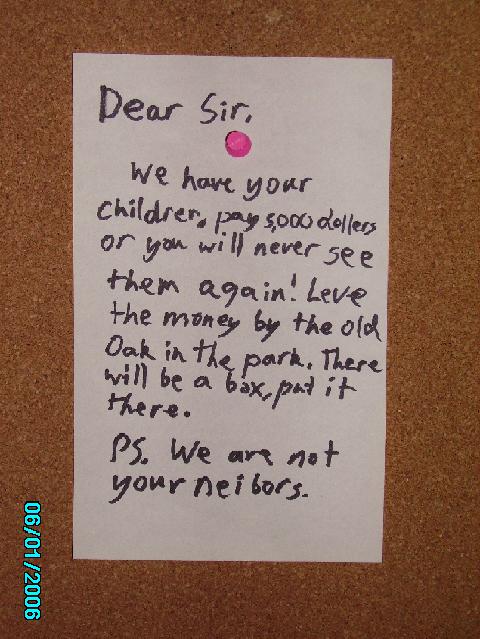 Dear Sir,
We have your
children, pay 5,000 dollers
or you will never see
them again! Leve
the money by the old
Oak in the park. There
will be a box, put it
there.
PS. We are not
your neibors.
06/01/2006